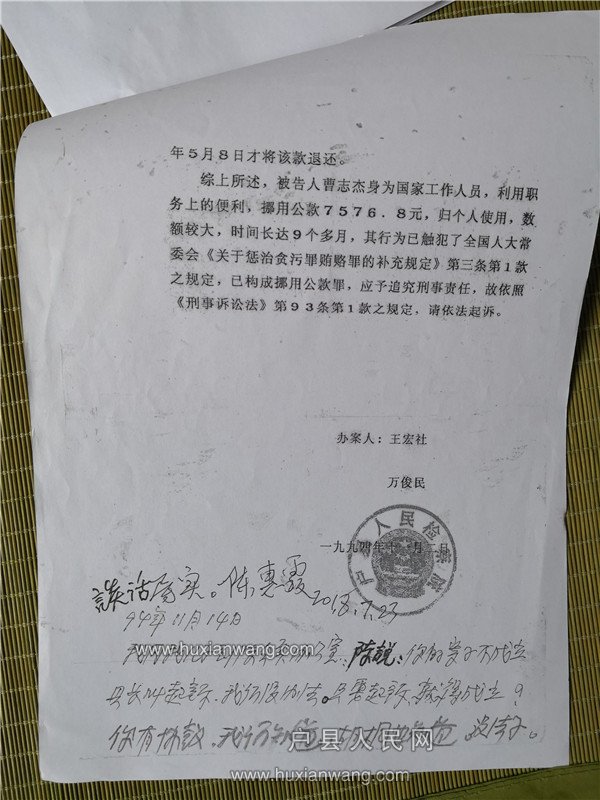 年5月8日才将该款退还。
综上所述，被告人曹志杰身为国家工作人员，利用职
务上的便利，挪用公款7576.8元，归个人使用，数
额较大，时间长达9个多月，其行为已触犯了全国人大常
委会《关于惩治贪污罪贿赂罪的补充规定》第三条第1款
之规定，已构成挪用公款罪，应予追究刑事责任，故依照
《刑事诉讼法》第93条第1款之规定，请依法起诉。
办案人：王宏社
万俊民
一九九四年十 月二日
户 人民检察院
谈话属实。陈惠霞 2018.7.23
94年11月14日
陈锐：你的案子不成立
县长叫起诉，我们没办法。只要起诉，就得成立！
你有怀疑，我们
户县人民网
www.huxianwang.com
户县人民网
www.huxianwang.com
户县人民网
www.huxianwang.com